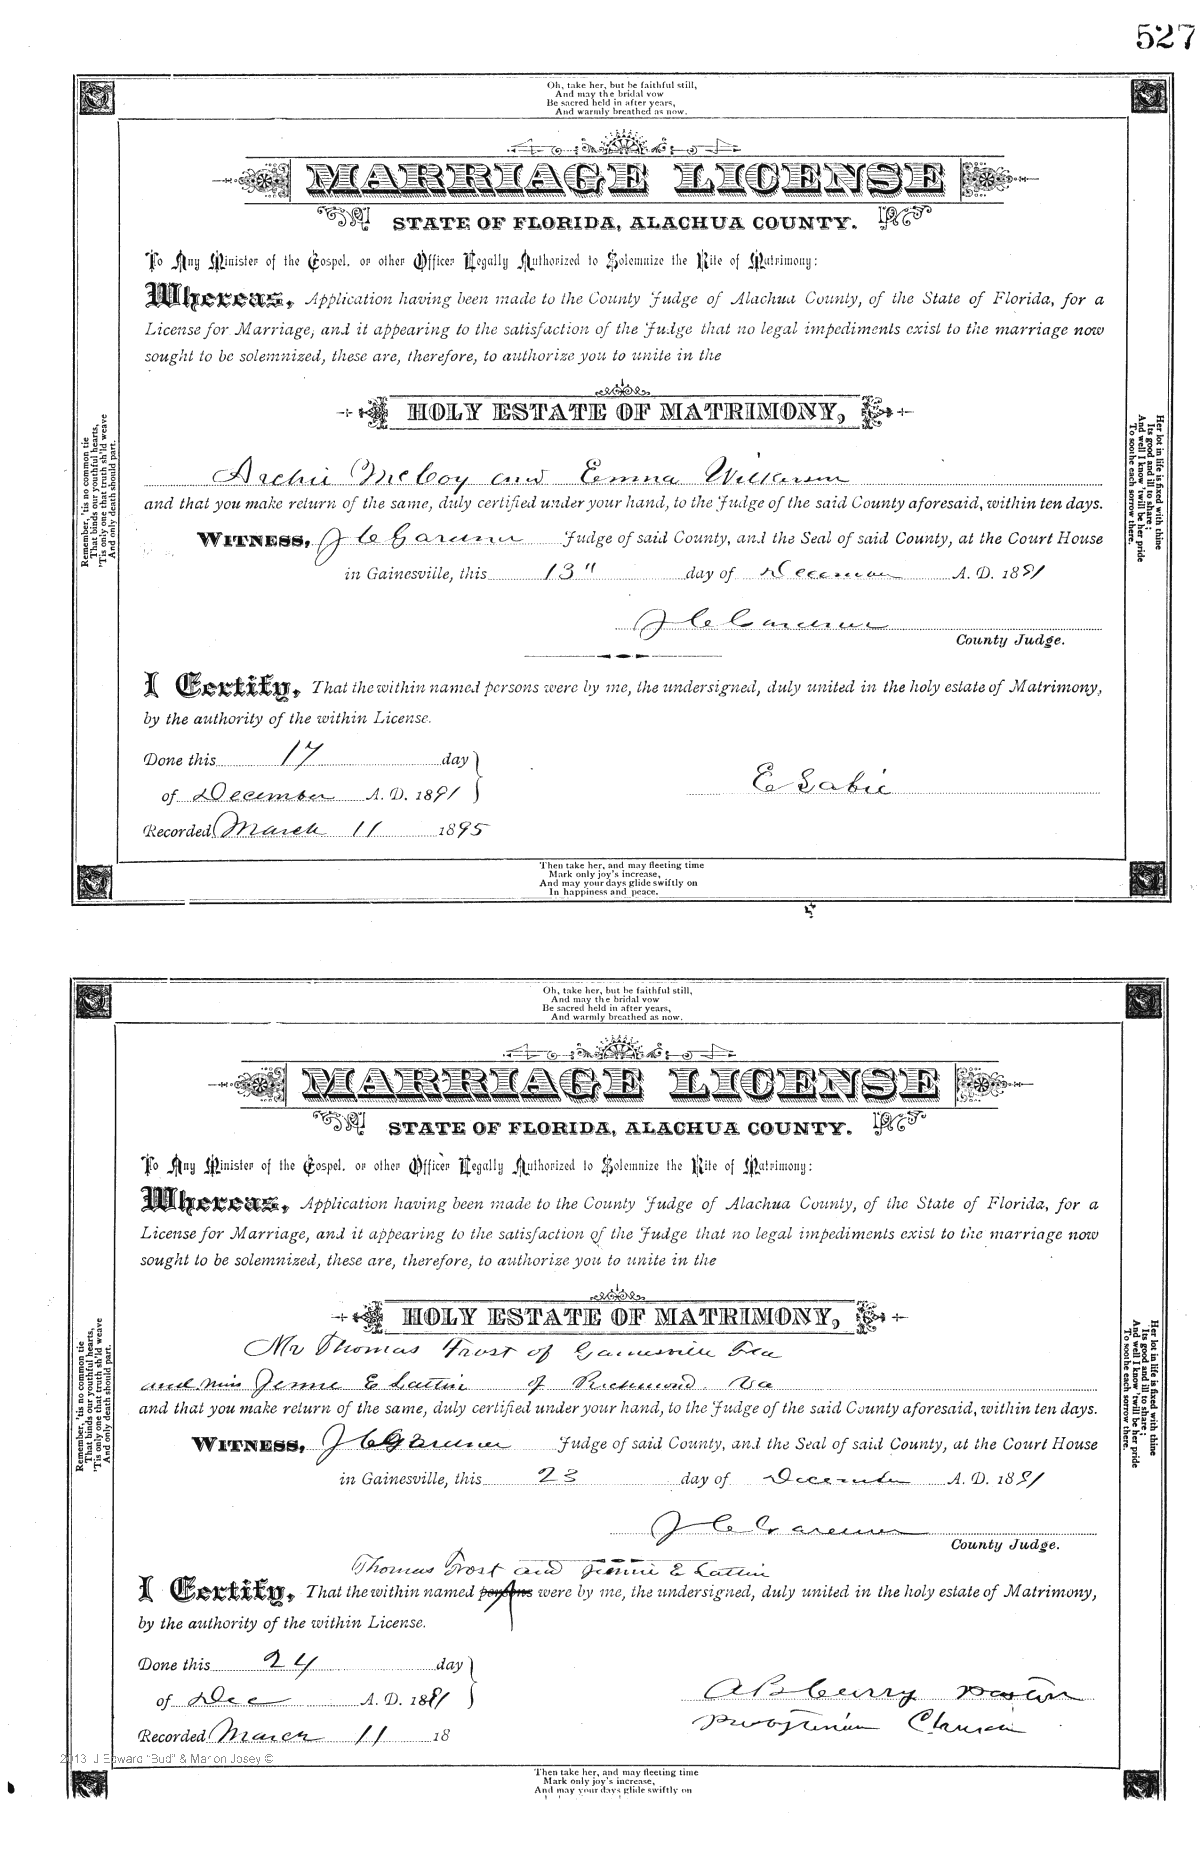 527
Oh, take her, but be faithful still,
And may the bridal vow
Be sacred held in after years,
And warmly breathed as now.
MARRIAGE LICENSE
STATE OF FLORIDA, ALACHUA COUNTY.
To Any Minister of the Gospel, or other Officer Legally Authorized to Solemnize the Rite of Matrimony:
Whereas, Application having been made to the County Judge of Alachua County, of the State of Florida, for a
License for Marriage, and it appearing to the satisfaction of the Judge that no legal impediments exist to the marriage now
sought to be solemnized, these are, therefore, to authorize you to unite in the
HOLY ESTATE OF MATRIMONY,
Archie McCoy and Emma Wilkerson
and that you make return of the same, duly certified under your hand, to the Judge of the said County aforesaid, within ten days.
WITNESS, J C Gardner Judge of said County, and the Seal of said County, at the Court House
in Gainesville, this 13" day of December A. D. 1891
J C Gardner
County Judge.
I Certify, That the within named persons were by me, the undersigned, duly united in the holy estate of Matrimony,
by the authority of the within License.
Done this 17 day
of December A. D. 1891
E Sabie
Recorded March 11 1895
Remember, 'tis no common tie
That binds our youthful hearts,
'Tis only one that truth sh'ld weave
And only death should part.
Her lot in life is fixed with thine
Its good and ill to share;
And well I know 'twill be her pride
To soothe each sorrow there.
Then take her, and may fleeting time
Mark only joy's increase,
And may your days glide swiftly on
In happiness and peace.
Oh, take her, but be faithful still,
And may the bridal vow
Be sacred held in after years,
And warmly breathed as now.
MARRIAGE LICENSE
STATE OF FLORIDA, ALACHUA COUNTY.
To Any Minister of the Gospel, or other Officer Legally Authorized to Solemnize the Rite of Matrimony:
Whereas, Application having been made to the County Judge of Alachua County, of the State of Florida, for a
License for Marriage, and it appearing to the satisfaction of the Judge that no legal impediments exist to the marriage now
sought to be solemnized, these are, therefore, to authorize you to unite in the
HOLY ESTATE OF MATRIMONY,
Mr Thomas Frost of Gainesville Fla
and Miss Jennie E Lattin of Richmond Va
and that you make return of the same, duly certified under your hand, to the Judge of the said County aforesaid, within ten days.
WITNESS, J C Gardner Judge of said County, and the Seal of said County, at the Court House
in Gainesville, this 23 day of December A. D. 1891
J C Gardner
County Judge.
Thomas Frost and Jennie E Lattin
I Certify, That the within named persons were by me, the undersigned, duly united in the holy estate of Matrimony,
by the authority of the within License.
Done this 24 day
of Dec A. D. 1891
A B Curry Pastor
Presbyterian Church
Recorded March 11 18
Remember, 'tis no common tie
That binds our youthful hearts,
'Tis only one that truth sh'ld weave
And only death should part.
Her lot in life is fixed with thine
Its good and ill to share;
And well I know 'twill be her pride
To soothe each sorrow there.
2013 J Edward "Bud" & Marion Josey ©
Then take her, and may fleeting time
Mark only joy's increase,
And may your days glide swiftly on